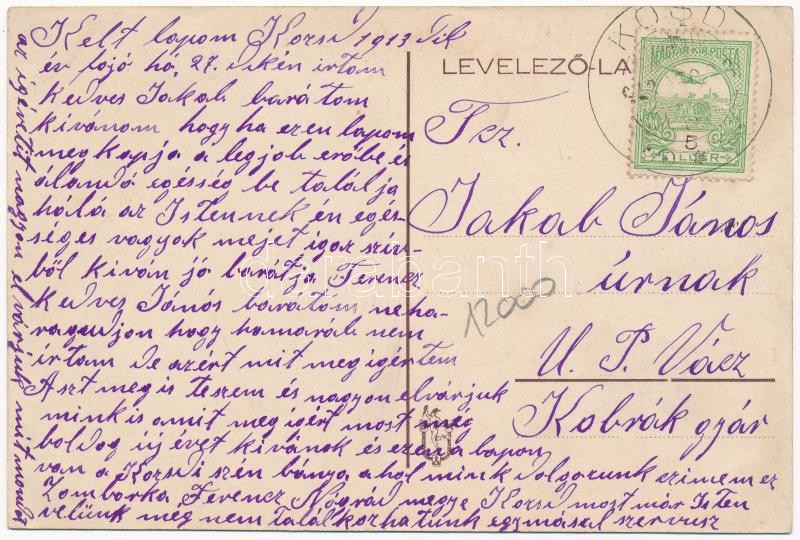 Kelt lapom Kozsd 1913 Dik
év fojó hó 27. dikén irtam
Kedves Jakab barátom
kivánom hogy ha ezen lapom
meg kapja a legjob erőbe és
álandó egésség be találja
hálá az Istennek én egés-
séges vagyok mejet igaz sziv-
ből kiván jó barátja Ferencz
Kedves János barátom neha-
ragudjon hogy hamaráb nem
irtam de azért mit meg igértem
Aszt meg is teszem és nagyon elvárjuk
mink is amit meg igért most még
boldog új évet kivánok és ezen a lapon
van a Kozsdi szén bánya a hol mink dolgozunk czimem ez
Zomborka Ferencz Nógrád megye Kozsd most már Isten
velünk még nem találkozhatunk egymásal szervusz
az igéretét nagyon el várjuk mit mondot
LEVELEZŐ-LA
Tcz.
Jakab János
úrnak
U. P. Vácz
Kobrák gyár
12000
KOSD
MAGYAR KIR. POSTA
5
FILLÉR
darabanth